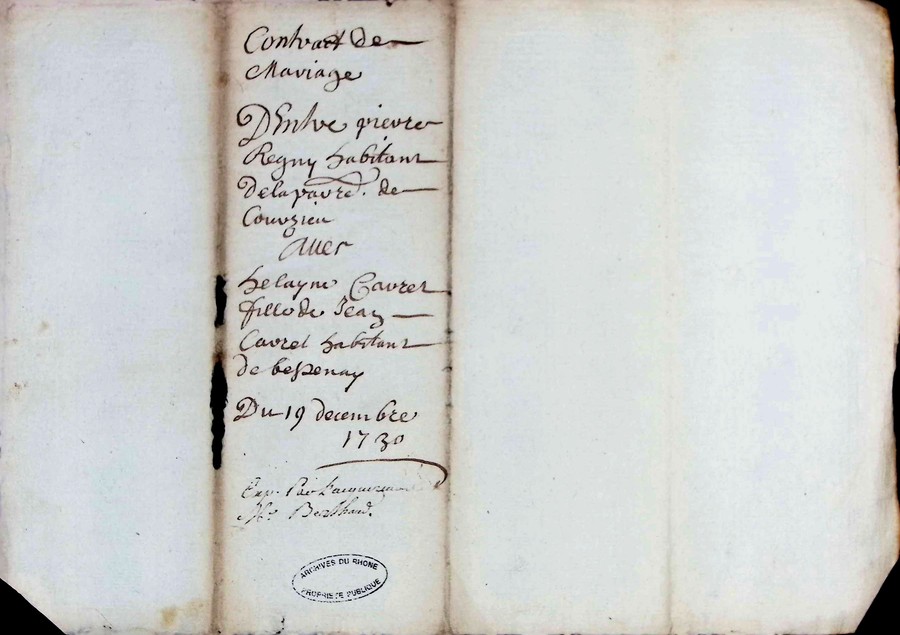 Contract de
Mariage
D'Entre pierre
Regny habitant
de la parre. de
Courzieu
Avec
helayne Cavret
fille de Jean
Cavret habitant
de bessenay
Du 19 decembre
1730
Exp. Par
Me. Berthaud.
ARCHIVES DU RHONE
PROPRIETE PUBLIQUE